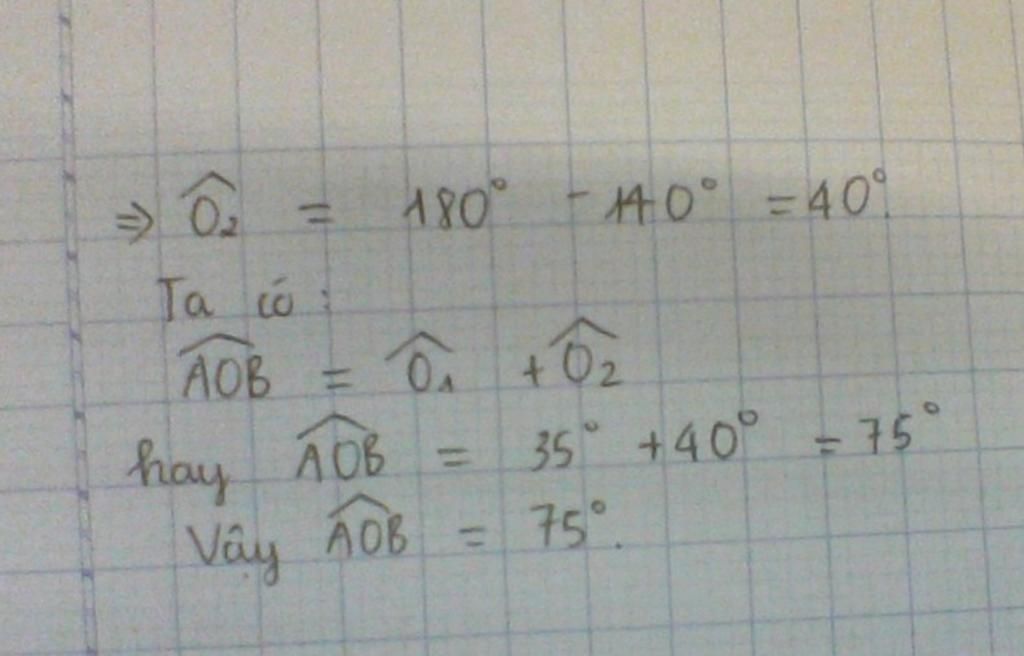 ⇒ Ô₂ = 180° - 140° = 40°.
Ta có :
AOB̂ = Ô₁ + Ô₂
hay AOB̂ = 35° + 40° = 75°
Vậy AOB̂ = 75°.